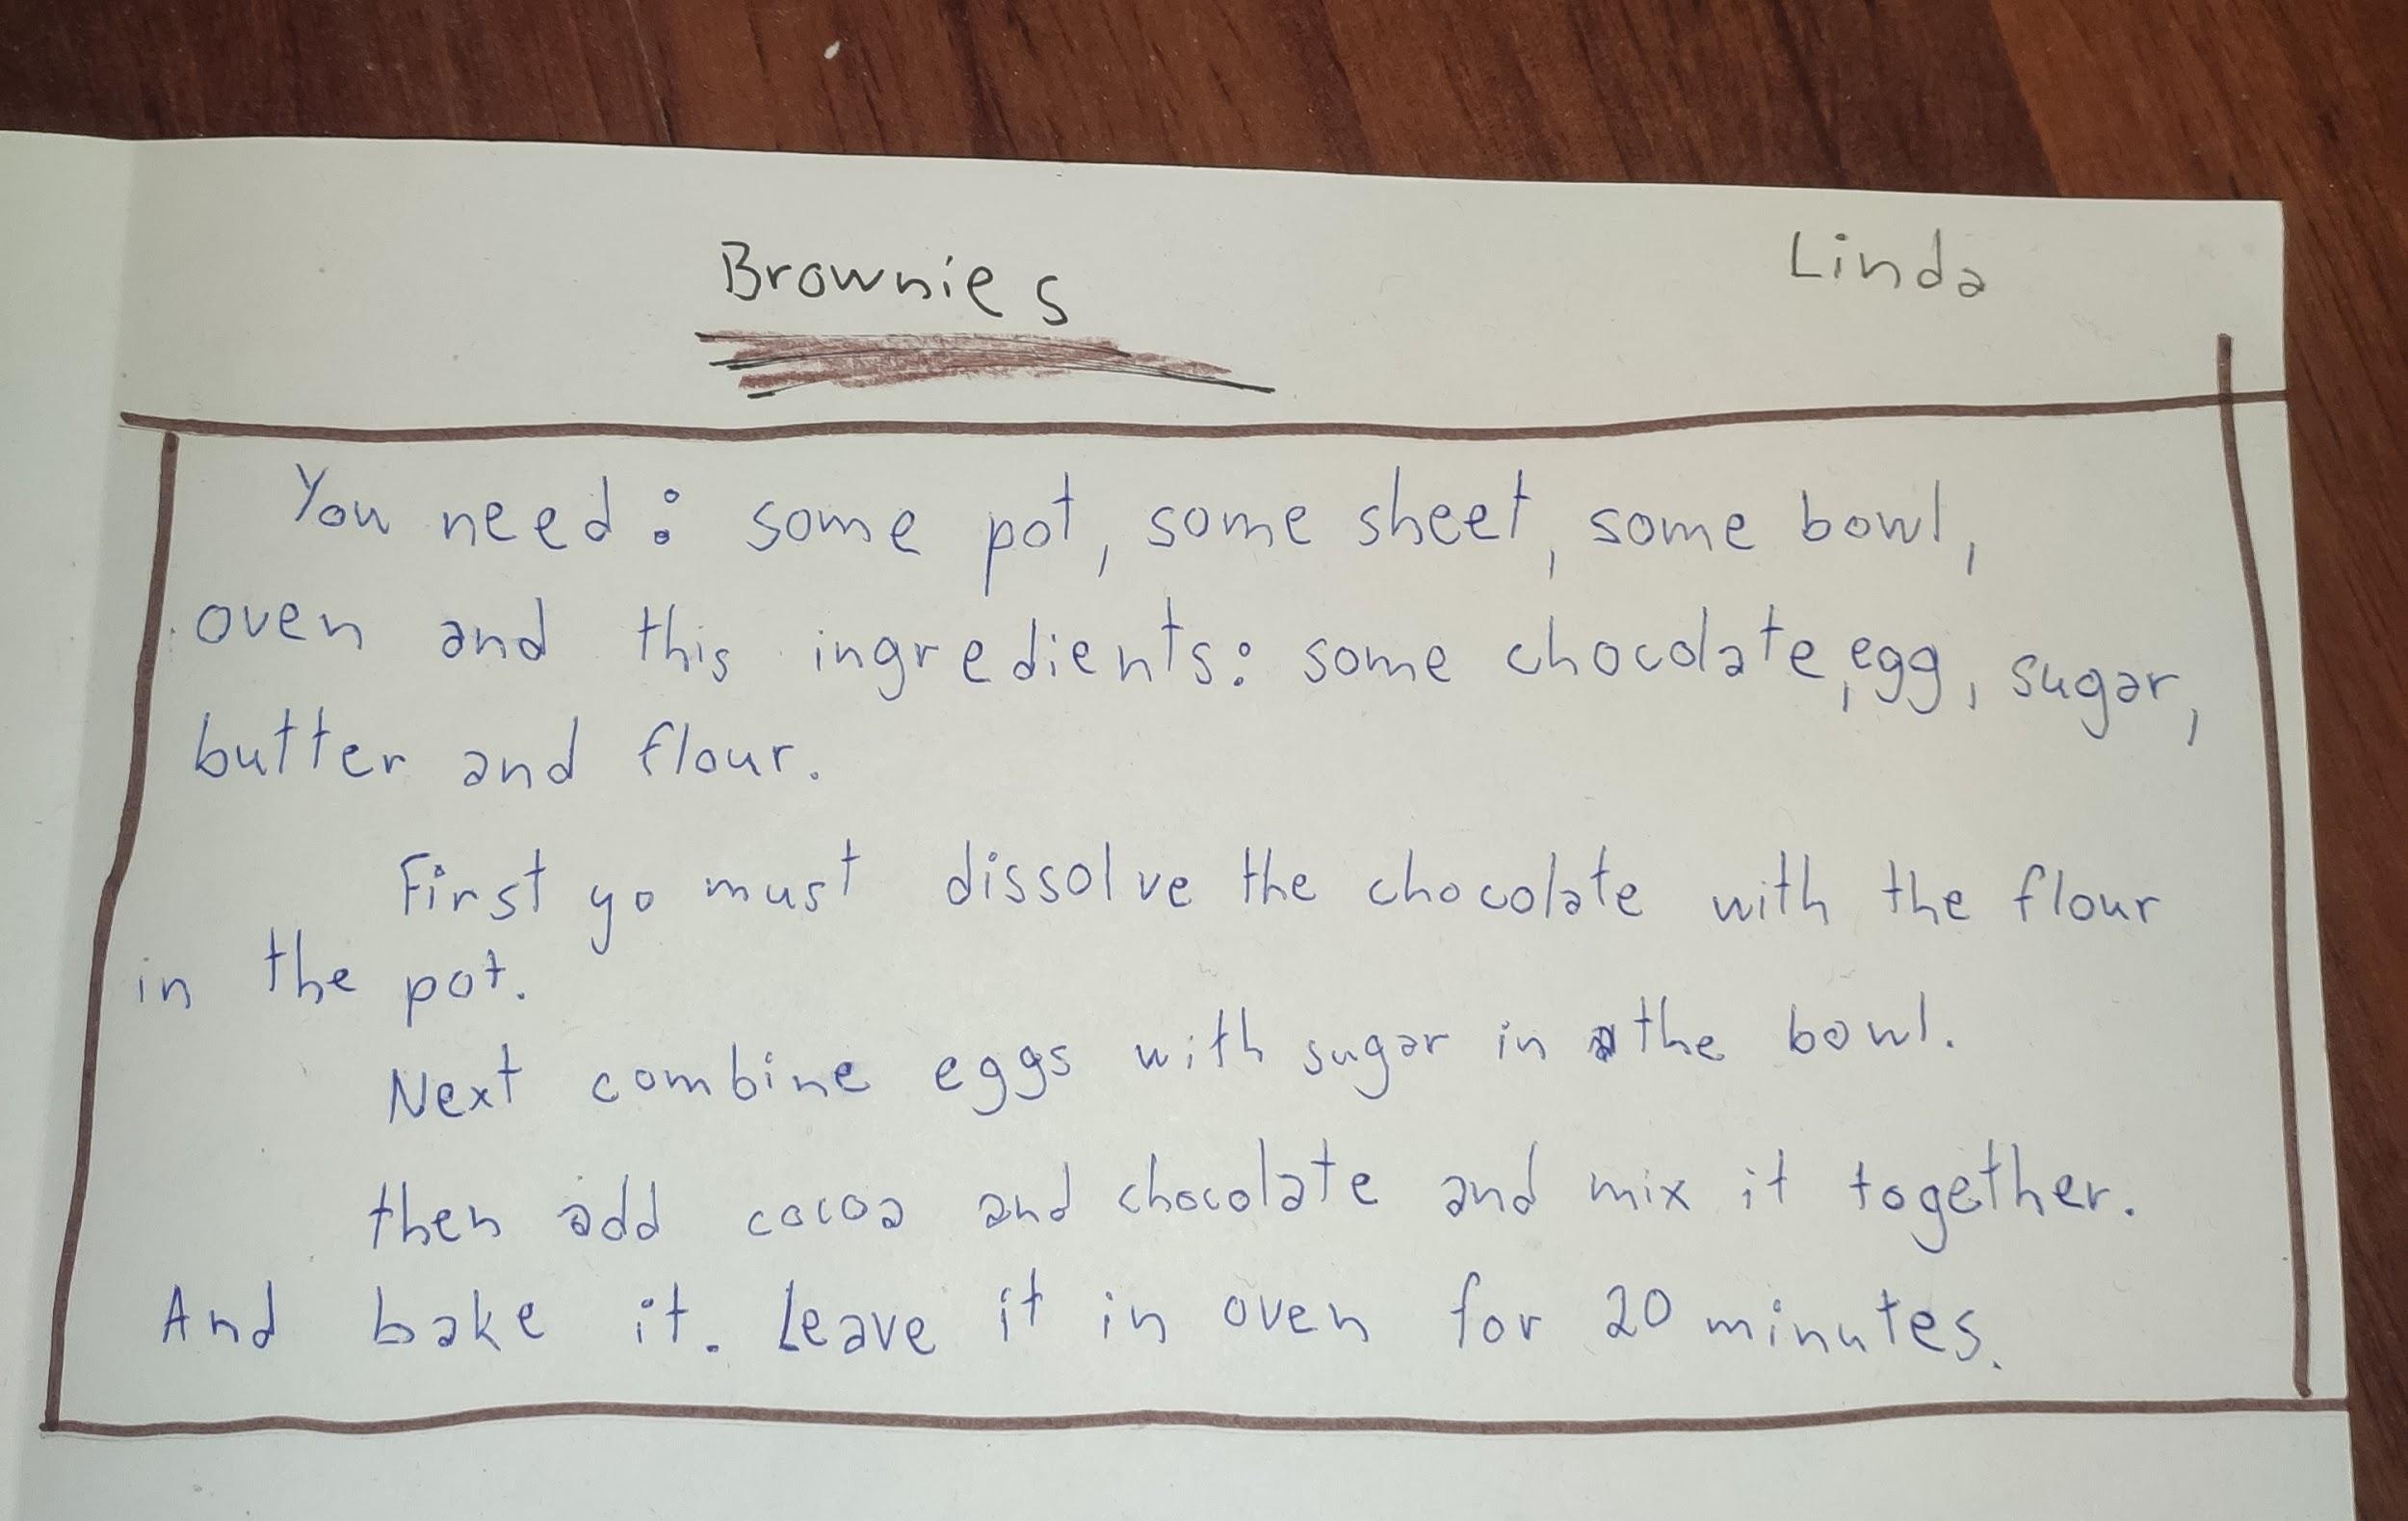 Brownies
Linda
You need: some pot, some sheet, some bowl,
oven and this ingredients: some chocolate, egg, sugar,
butter and flour.
First yo must dissolve the chocolate with the flour
in the pot.
Next combine eggs with sugar in the bowl.
then add cocoa and chocolate and mix it together.
And bake it. Leave it in oven for 20 minutes.